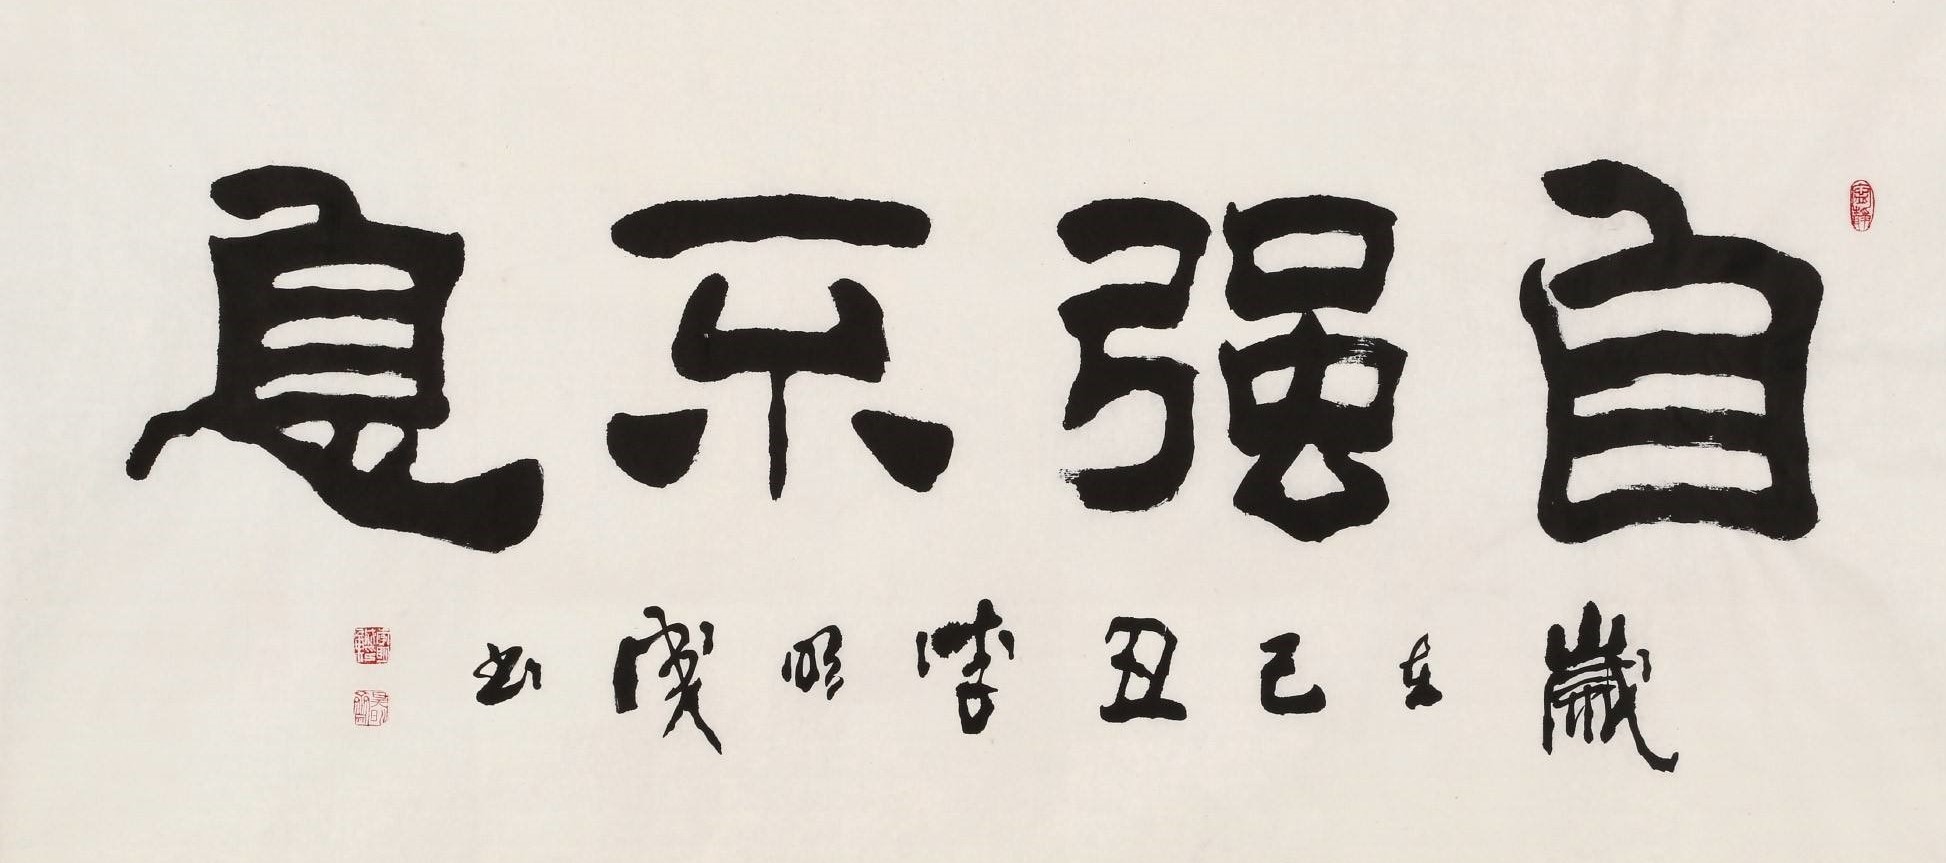 自强不息
歲在己丑李明書